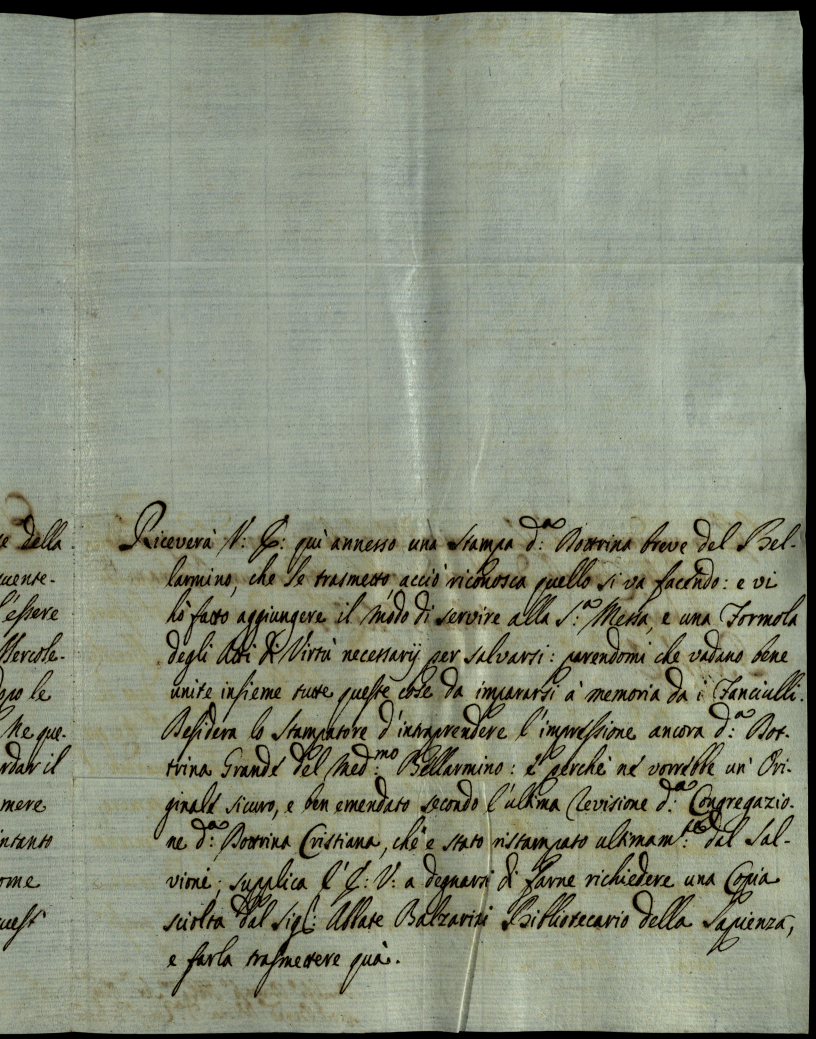 e della
uente-
l'essere
Mercole-
dopo le
Ne que-
rdar il
mere
intanto
ome
uest'
Riceverà V: E: quì annesso una stampa d:ª Dottrina breve del Bel-
larmino, che Le trasmetto acciò riconosca quello si va facendo: e vi
hò fatto aggiungere il modo di servire alla S:ª Messa, e una Formola
degli Atti di Virtù necessarij per salvarsi: parendomi che vadano bene
unite insieme tutte queste cose da impararsi à memoria da i Fanciulli.
Desidera lo Stampatore d'intraprendere l'impressione ancora d:ª Dot-
trina Grande del Med:mo Bellarmino: e perchè ne vorrebbe un' Ori-
ginale sicuro, e ben emendato secondo l'ultima Revisione d:ª Congregazio-
ne d:ª Dottrina Cristiana, che è stato ristampato ultimam:te dal Sal-
vioni; supplica l'E: V: a degnarsi di farne richiedere una Copia
sciolta dal Sigr: Abbate Balzarini Bibliotecario della Sapienza,
e farla trasmettere quà.